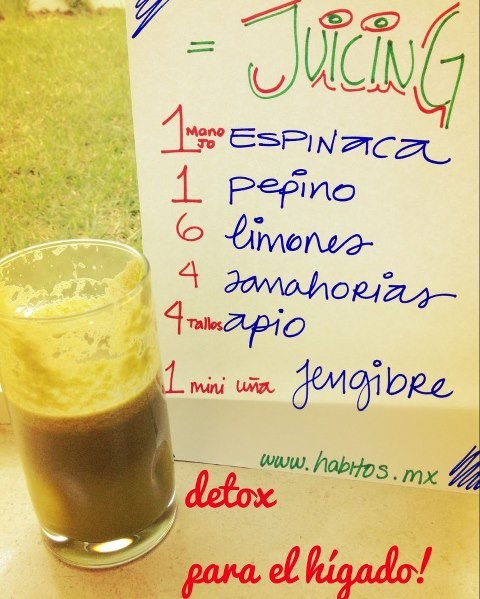 = JUICING
1 Manojo ESPINACA
1 pepino
6 limones
4 zanahorias
4 Tallos apio
1 mini uña Jengibre
www.habitos.mx
detox
para el hígado!